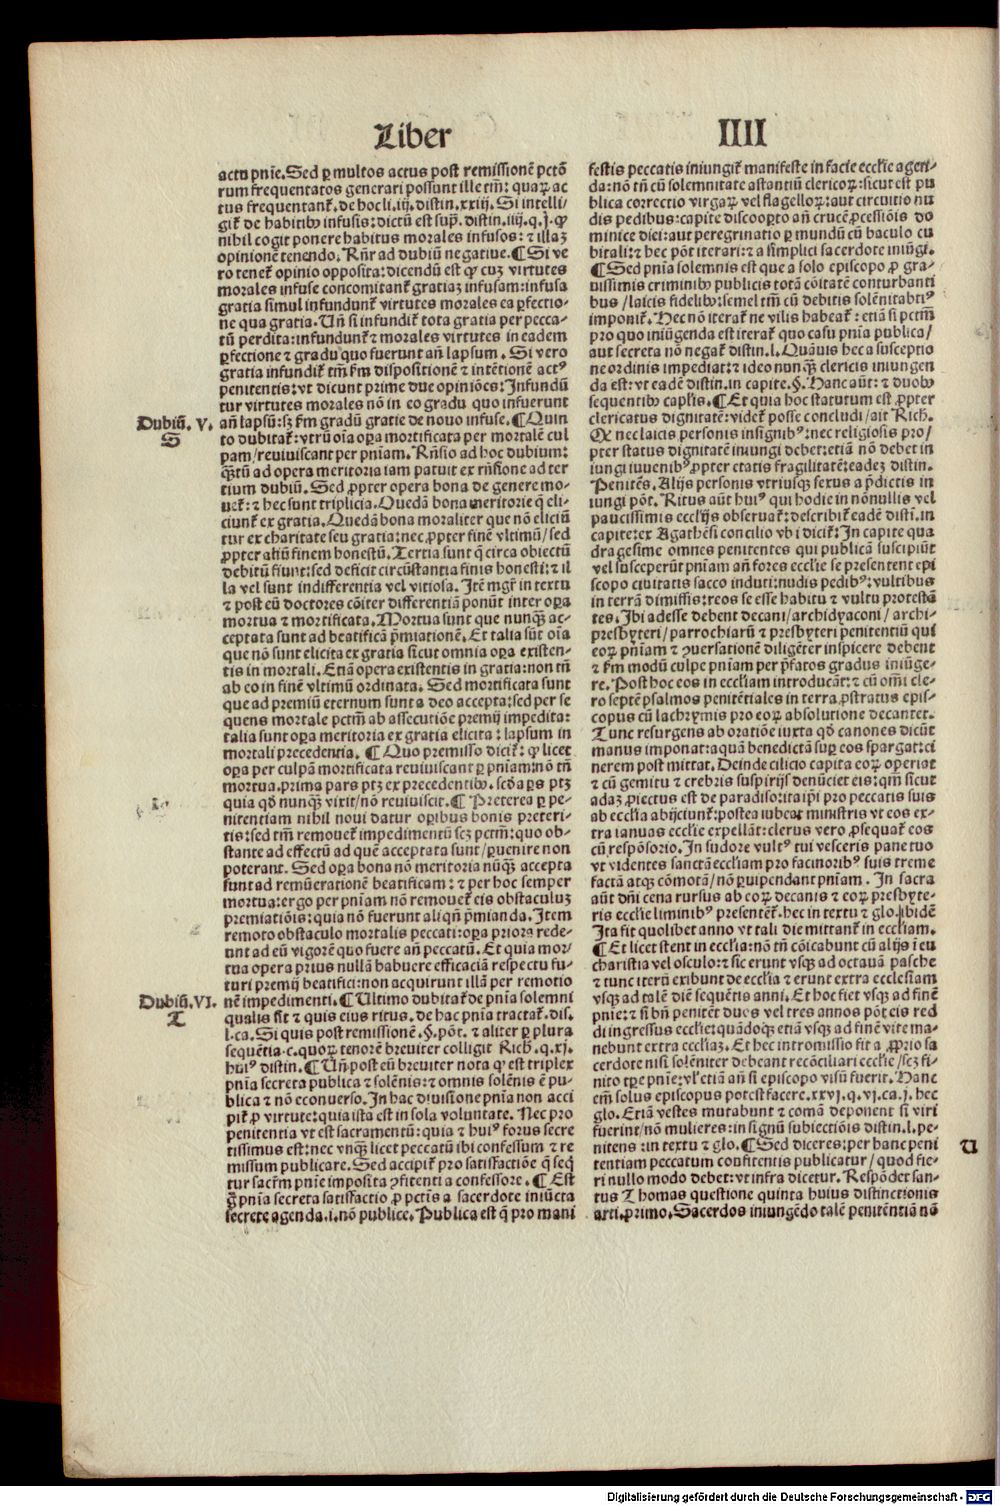 Liber
IIII
actu pnīe. Sed ꝑ multos actus post remissionē pctō
rum frequentatos generari possunt ille tm̄: quaꝝ ac
tus frequentant᷑. de hoc li. iij. distin. xxiij. Si intelli/
git᷑ de habitibꝰ infusis: dictū est sup̄. distin. iiij. q. j. ꝙ
nihil cogit ponere habitus morales infusos: ⁊ illaꝫ
opinionē tenendo. Rn̄r ad dubiū negatiue. ¶ Si ve
ro tenet᷑ opinio opposita: dicendū est ꝙ cuꝫ virtutes
morales infuse concomitant᷑ gratiaꝫ infusam: infusa
gratia simul infundunt᷑ virtutes morales ea ꝑfectio-
ne qua gratia. Un̄ si infundit᷑ tota gratia per pecca-
tū perdita: infundunt᷑ ⁊ morales virtutes in eadem
ꝑfectione ⁊ gradu quo fuerunt an̄ lapsum. Si vero
gratia infundit᷑ tm̄ ẜm dispositionē ⁊ intētionē actꝰ
penitentis: vt dicunt prime due opiniōes: Infundū
tur virtutes morales nō in eo gradu quo infuerunt
Dubiū. V.
S
an̄ lapsū: sꝫ ẜm gradū gratie de nouo infuse. ¶ Quin
to dubitat᷑: vtrū oīa oꝑa mortificata per mortalē cul
pam/ reuiuiscant per pnīam. Rn̄sio ad hoc dubium:
qꝫtū ad opera meritoria iam patuit ex rn̄sione ad ter
tium dubiū. Sed ꝓpter opera bona de genere mo-
uet᷑: ⁊ hec sunt triplicia. Quedā bona meritorie q̄ eli-
ciunt᷑ ex gratia. Quedā bona moraliter que nō eliciū
tur ex charitate seu gratia: nec ꝓpter finē vltimū/ sed
ꝓpter aliū finem honestū. Tertia sunt q̄ circa obiectū
debitū fiunt: sed deficit circūstantia finis honesti: ⁊ il
la vel sunt indifferentia vel vitiosa. Itē mgr̄ in textu
⁊ post eū doctores cōiter differentiā ponūt inter oꝑa
mortua ⁊ mortificata. Mortua sunt que nunqꝫ ac-
ceptata sunt ad beatificā p̄miationē. Et talia sūt oīa
que nō sunt elicita ex gratia sicut omnia oꝑa existen-
tis in mortali. Etiā opera existentis in gratia: non tn̄
ab eo in finē vltimū ordinata. Sed mortificata sunt
que ad premiū eternum sunt a deo accepta: sed per se
quens mortale pctm̄ ab assecutiōe premij impedita:
talia sunt oꝑa meritoria ex gratia elicita: lapsum in
mortali precedentia. ¶ Quo premisso dicit᷑: ꝙ licet
oꝑa per culpā mortificata reuiuiscant ꝑ pnīam: nō tn̄
mortua. prima pars ptꝫ ex precedentibꝰ. scd̄a ꝑs ptꝫ
quia qd̄ nunqꝫ vixit/ nō reuiuiscit. ¶ Preterea ꝑ pe-
nitentiam nihil noui datur oꝑibus bonis preteri-
tis: sed tm̄ remouet᷑ impedimentū scꝫ pctm̄: quo ob-
stante ad effectū ad quē acceptata sunt/ ꝑuenire non
poterant. Sed oꝑa bona nō meritoria nūqꝫ accepta
sunt ad remūerationē beatificam: ⁊ per hoc semper
mortua: ergo per pnīam nō remouet᷑ eis obstaculuꝫ
premiatiōis: quia nō fuerunt aliqn̄ p̄mianda. Item
remoto obstaculo mortalis peccati: oꝑa priora rede-
unt ad eū vigorē quo fuere an̄ peccatū. Et quia mor/
tua opera prius nullā habuere efficaciā respectu fu-
turi premij beatifici: non acquirunt illā per remotio
Dubiū. VI.
T
nē impedimenti. ¶ Ultimo dubitat᷑ de pnīa solemni
qualis sit ⁊ quis eius ritus. de hac pnīa tractat᷑. dis.
l. ca. Si quis post remissionē. §. pōt. ⁊ aliter ꝑ plura
sequētia. c. quoꝝ tenorē breuiter colligit Rich. q. xj.
huiꝰ distin. ¶ Un̄ post eū breuiter nota ꝙ est triplex
pnīa secreta publica ⁊ solēnis: ⁊ omnis solēnis ē pu-
blica ⁊ nō econuerso. In hac diuisione pnīa non acci
pit᷑ ꝓ virtute: quia ista est in sola voluntate. Nec pro
penitentia vt est sacramentū: quia ⁊ huiꝰ forus secre
tissimus est: nec vnqꝫ licet peccatū ibi confessum ⁊ re
missum publicare. Sed accipit᷑ pro satisfactiōe q̄ seq̄
tur sacr̄m pnīe imposita ꝯfitenti a confessore. ¶ Est
g̊ pnīa secreta satisfactio ꝓ pctīs a sacerdote iniūcta
secrete agenda. i. nō publice. Publica est q̄ pro mani
festis peccatis iniungit᷑ manifeste in facie ecclīe agen-
da: nō tn̄ cū solemnitate astantiū clericoꝝ: sicut est pu
blica correctio virgaꝝ vel flagelloꝝ: aut circuitio nu
dis pedibus: capite discooꝑto an̄ crucē ꝓcessiōis do
minice diei: aut peregrinatio ꝑ mundū cū baculo cu
bitali: ⁊ hec pōt iterari: ⁊ a simplici sacerdote iniūgi.
¶ Sed pnīa solemnis est que a solo episcopo ꝓ gra-
uissimis criminibꝰ publicis totā cōitatē conturbanti
bus/ laicis fidelibꝰ: semel tm̄ cū debitis solēnitatibꝰ
imponit᷑. Hec nō iterat᷑ ne vilis habeat᷑: etiā si pctm̄
pro quo iniūgenda est iterat᷑ quo casu pnīa publica/
aut secreta nō negat᷑ distin. l. Quāuis hec a susceptio
ne ordinis impediat: ⁊ ideo non qꝫ clericis iniungen
da est: vt eadē distin. in capite. §. Hanc aūt: ⁊ duobꝰ
sequentibꝰ capl̄is. ¶ Et quia hoc statutum est ꝓpter
clericatus dignitatē: videt᷑ posse concludi/ ait Rich.
Qꝫ nec laicis personis insignibꝰ: nec religiosis pro/
pter status dignitatē iniungi debet: etiā nō debet in
iungi iuuenibꝰ ꝓpter etatis fragilitatē: eadeꝫ distin.
Penitēs. Alijs personis vtriusqꝫ sexus a p̄dictis in
iungi pōt. Ritus aūt huiꝰ qui hodie in nōnullis vel
paucissimis eccl̄ijs obseruat᷑: describit᷑ eadē distī. in
capite: ex Agathēsi concilio vbi dicit᷑: In capite qua
dragesime omnes penitentes qui publicā suscipiūt
vel susceperūt pnīam an̄ fores ecclīe se presentent epi
scopo ciuitatis sacco induti: nudis pedibꝰ: vultibus
in terrā dimissis: reos se esse habitu ⁊ vultu protestā
tes. Ibi adesse debent decani/ archidyaconi/ archi-
presbyteri/ parrochiarū ⁊ presbyteri penitentiū qui
eoꝝ pnīam ⁊ ꝯuersationē diligēter inspicere debent
⁊ ẜm modū culpe pnīam per p̄fatos gradus iniūge-
re. Post hoc eos in eccl̄iam introducāt: ⁊ cū om̄i cle-
ro septē psalmos penitētiales in terra ꝓstratus epis-
copus cū lachrymis pro eoꝝ absolutione decantet.
Tunc resurgens ab oratiōe iuxta qd̄ canones dicūt
manus imponat: aquā benedictā suꝑ eos spargat: ci
nerem post mittat. Deinde cilicio capita eoꝝ operiat
⁊ cū gemitu ⁊ crebris suspirijs denūciet eis: qm̄ sicut
adaꝫ ꝓiectus est de paradiso: ita ip̄i pro peccatis suis
ab eccl̄ia abijciunt᷑: postea iubeat ministris vt eos ex-
tra ianuas ecclīe expellāt: clerus vero ꝓsequat᷑ eos
cū respōsorio. In sudore vultꝰ tui vesceris pane tuo
vt videntes sanctā eccl̄iam pro facinoribꝰ suis treme
factā atqꝫ cōmotā/ nō ꝑuipendant pnīam. In sacra
aūt dn̄i cena rursus ab eoꝝ decanis ⁊ eoꝝ presbyte-
ris ecclīe liminibꝰ presentēt᷑. hec in textu ⁊ glo. ibidē
Ita fit quolibet anno vt tali die mittant᷑ in eccl̄iam.
¶ Et licet stent in eccl̄ia: nō tn̄ cōicabunt cū alijs ī eu
charistia vel osculo: ⁊ sic erunt vsqꝫ ad octauā pasche
⁊ tunc iterū exibunt de eccl̄ia ⁊ erunt extra ecclesiam
vsqꝫ ad talē diē sequētis anni. Et hoc fiet vsqꝫ ad finē
pnīe: ⁊ si bn̄ penitēt duos vel tres annos pōt eis red
di ingressus ecclīe: quādoqꝫ etiā vsqꝫ ad finē vite ma-
nebunt extra eccl̄iaꝫ. Et hec intromissio fit a ꝓprio sa
cerdote nisi solēniter debeant recōciliari ecclīe/ scꝫ fi-
nito tꝑe pnīe: vl̓ etiā an̄ si episcopo visū fuerit. Hanc
em̄ solus episcopus potest facere. xxvj. q. vj. ca. j. hec
glo. Etiā vestes mutabunt ⁊ comā deponent si viri
fuerint/ nō mulieres: in signū subiectiōis distin. l. pe-
U
nitens: in textu ⁊ glo. ¶ Sed diceres: per hanc peni
tentiam peccatum confitentis publicatur/ quod fie-
ri nullo modo debet: vt infra dicetur. Respōdet san-
ctus Thomas questione quinta huius distinctionis
arti. primo. Sacerdos iniungēdo talē penitentiā nō
Digitalisierung gefördert durch die Deutsche Forschungsgemeinschaft - DFG